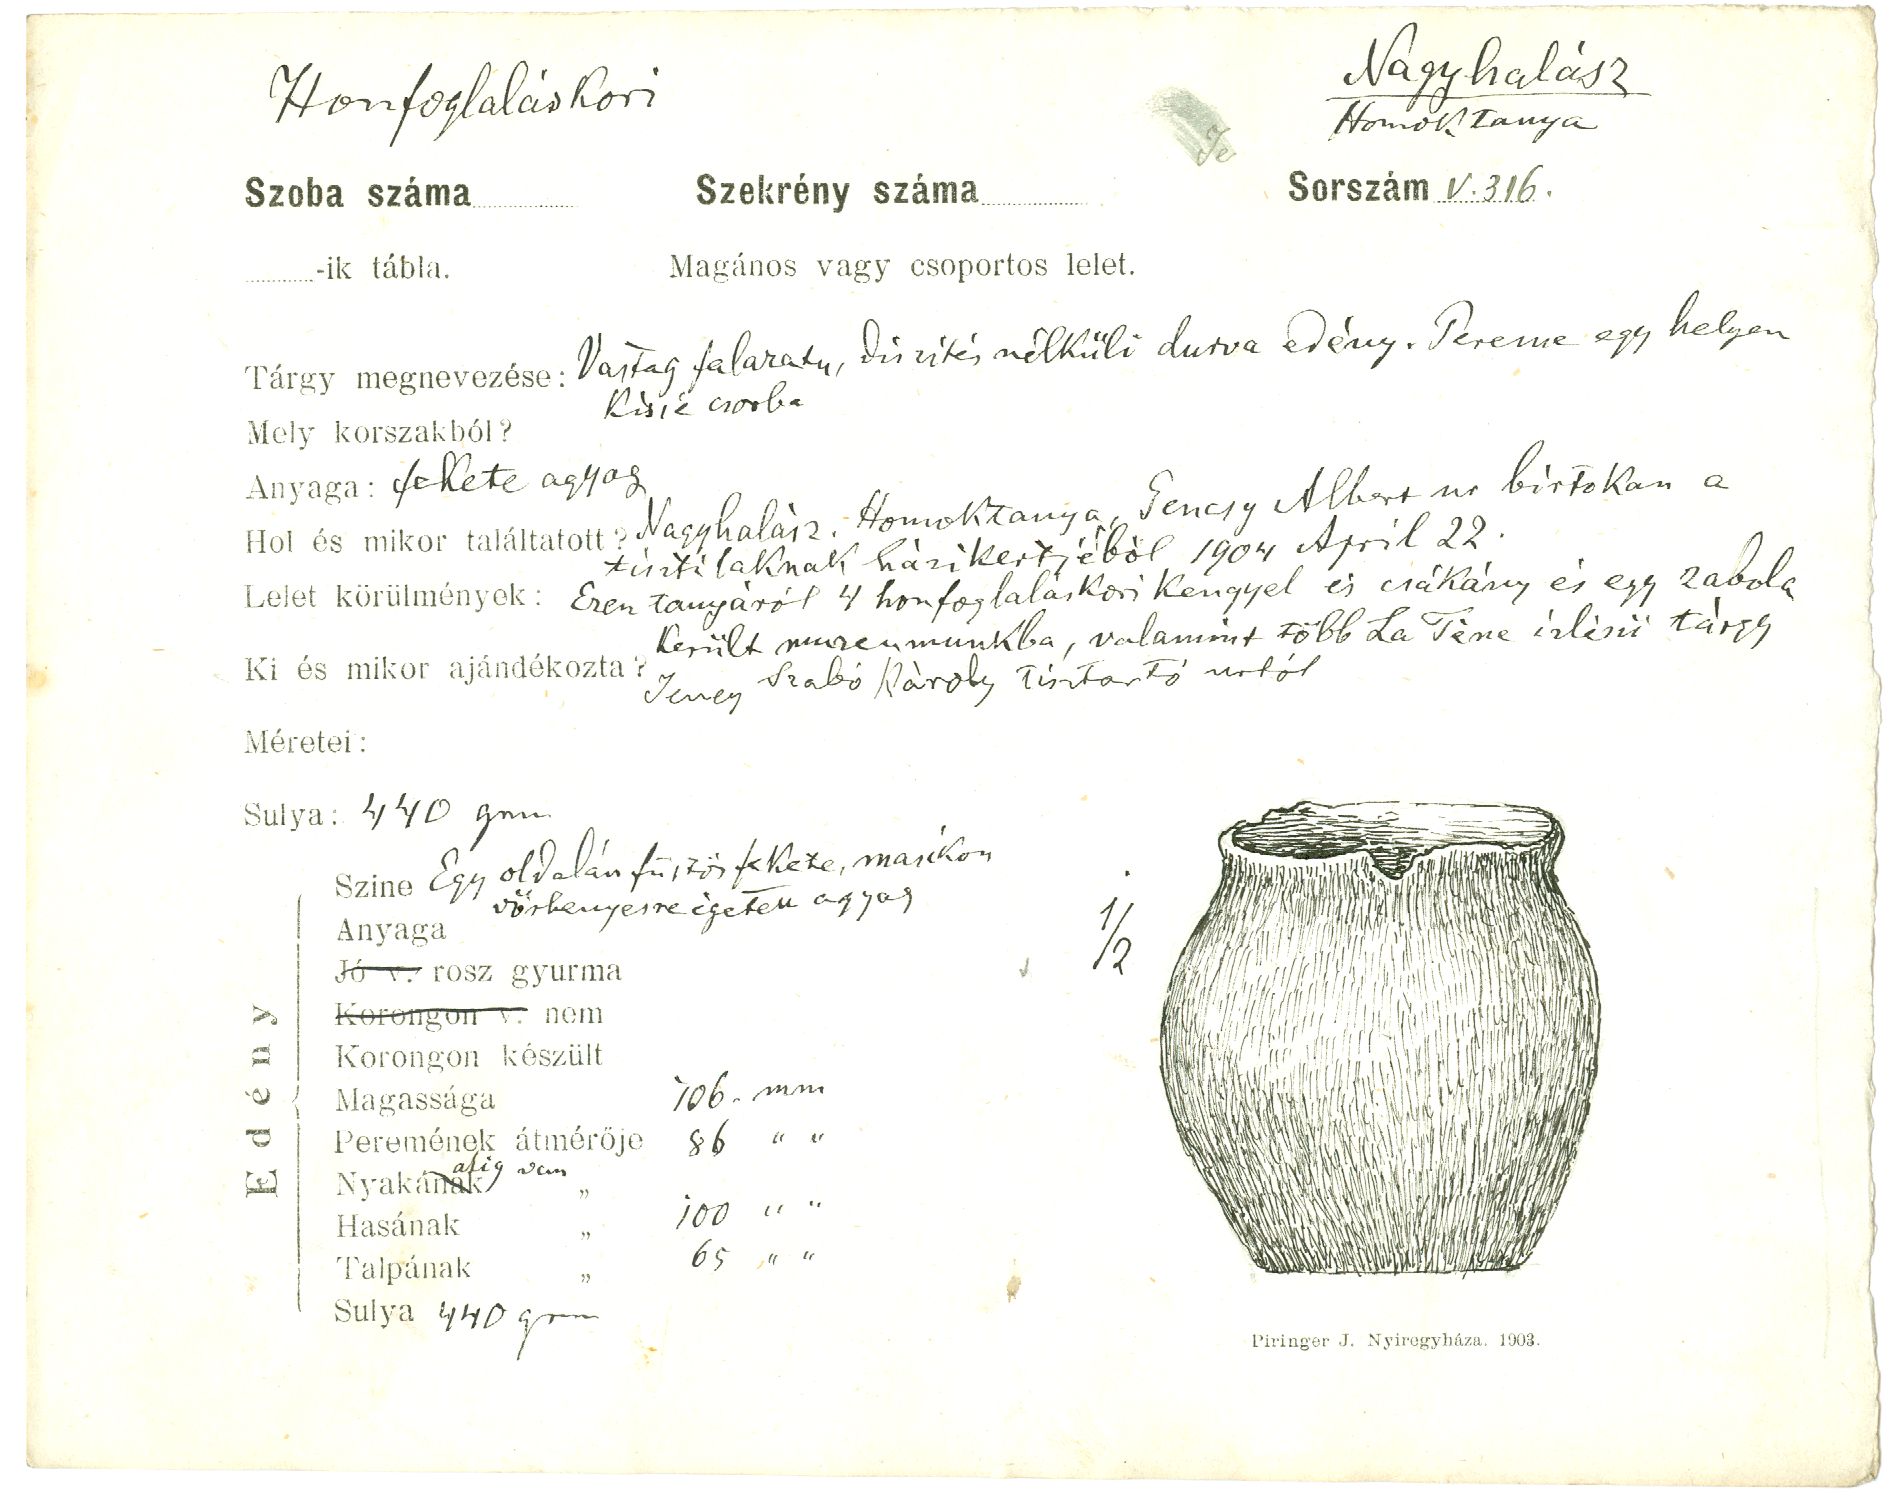 Honfogláláskori
Nagyhalász
Homoktanya
Szoba száma
Szekrény száma
Sorszám V. 316.
-ik tábla.
Magános vagy csoportos lelet.
Tárgy megnevezése: Vastag falazatu, diszités nélküli durva edény. Pereme egy helyen
kissé csorba
Mely korszakból?
Anyaga: fekete agyag
Hol és mikor találtatott? Nagyhalász. Homoktanya, Gencsy Albert ur birtokan a
tiszti laknak házikertjéböl 1904 April 22.
Lelet körülmények: Ezen tanyáról 4 honfogláláskori kengyel és csákány és egy zabola
került muzeumunkba, valamint több La Tène izlésü tárgy
Ki és mikor ajándékozta? Jeney Szabó Károly tisztartó urtól
Méretei:
Sulya: 440 grm
Edény
Szine Egy oldalán füstös fekete, masikon
vörhenyesre égetett agyag
Anyaga
Jó v. rosz gyurma
Korongon v. nem
Korongon készült
Magassága 106. mm
Peremének átmérője 86 " "
Nyakának alig van "
Hasának " 100 " "
Talpának " 65 " "
Sulya 440 grm
1/2
Piringer J. Nyiregyháza. 1903.